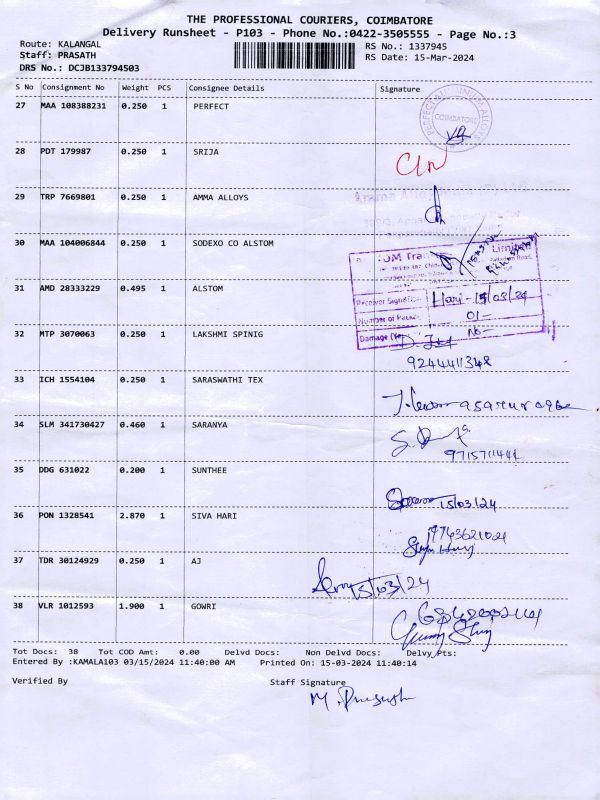 THE PROFESSIONAL COURIERS, COIMBATORE
Delivery Runsheet - P103 - Phone No.:0422-3505555 - Page No.:3
Route: KALANGAL
RS No.: 1337945
Staff: PRASATH
RS Date: 15-Mar-2024
DRS No.: DCJB133794503
S No Consignment No Weight PCS Consignee Details Signature
27 MAA 108388231 0.250 1 PERFECT
COIMBATORE
28 PDT 179987 0.250 1 SRIJA
29 TRP 7669801 0.250 1 AMMA ALLOYS
30 MAA 104006844 0.250 1 SODEXO CO ALSTOM
Limited
31 AMD 28333229 0.495 1 ALSTOM
Receiver Signature Hari - 15/03/24
Number of 01-
32 MTP 3070063 0.250 1 LAKSHMI SPINIG
Damage No-
9244411348
33 ICH 1554104 0.250 1 SARASWATHI TEX
34 SLM 341730427 0.460 1 SARANYA
9715711441
35 DDG 631022 0.200 1 SUNTHEE
15/03/24
36 PON 1328541 2.870 1 SIVA HARI
37 TDR 30124929 0.250 1 AJ
15/03/24
38 VLR 1012593 1.900 1 GOWRI
Tot Docs: 38 Tot COD Amt: 0.00 Delvd Docs: Non Delvd Docs: Delvy Pts:
Entered By :KAMALA103 03/15/2024 11:40:00 AM Printed On: 15-03-2024 11:40:14
Verified By Staff Signature